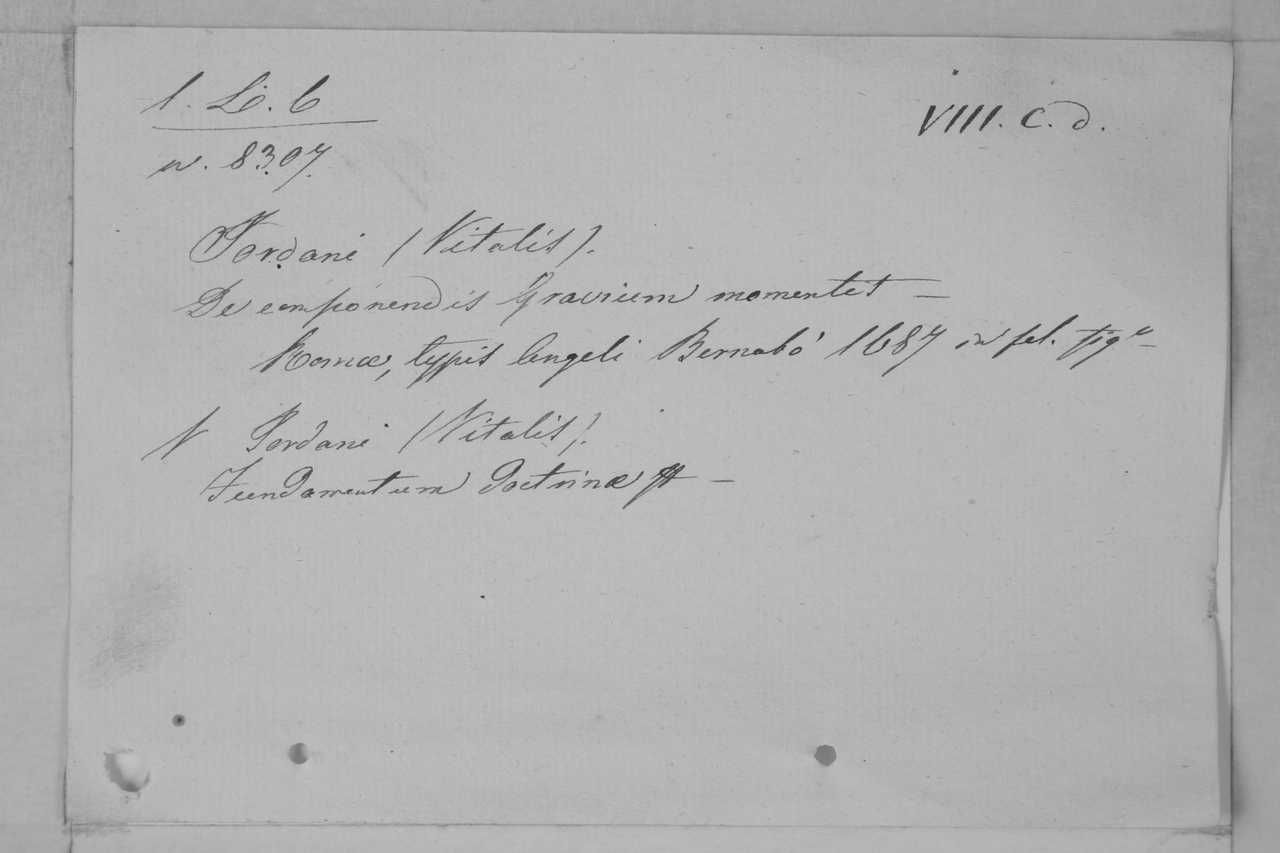 1. Li. 6
n. 8307.
VIII. C. d.
Jordani (Vitalis).
De componendis Gravium momentis —
Romæ, typis Angeli Bernabò 1687 in fol. figᵉ —
V Jordani (Vitalis).
Fundamentum doctrinæ —